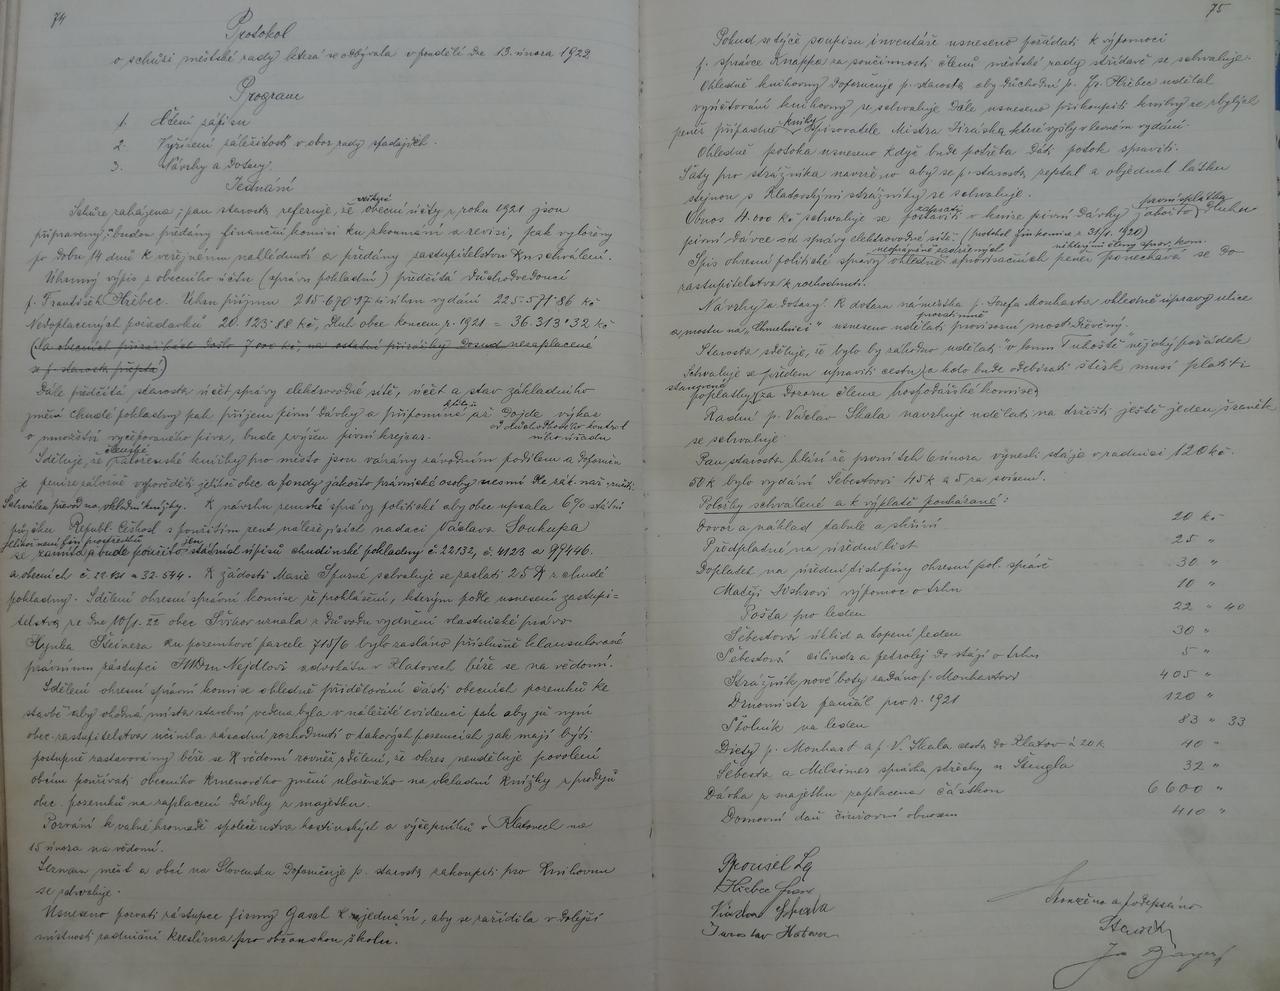 74
Protokol
o schůzi městské rady která se odbývala v pondělí dne 13. února 1922
Program
1. Čtení zápisu
2. Vyřízení záležitostí v obor rady spadajících.
3. Návrhy a dotazy.
Jednání
Schůze zahájena; pan starosta referuje, že veškeré obecní účty z roku 1921 jsou
připraveny, budou předány finanční komisi ku zkoumání a revisi, pak vyloženy
po dobu 14 dnů k veřejnému nahlédnutí a předány zastupitelstvu ku schválení.
Úhrnný výpis z obecního účtu (správu pokladní) předčítá důchodvedoucí
p. František Hřebec. Úhrn příjmu 215·670·17 úhrn vydání 225·571·86 kč
Nedoplacených požadavků 20.123·88 kč, dluh obce koncem r. 1921 = 36.313·32 kč
(Na obecních přirážkách došlo 7000 kč, na ostatní přirážky dosud nezaplacené
se p. starosta přeptá)
Dále předčítá starosta účet správy elektrovodné sítě, účet a stav základního
jmění chudé pokladny pak příjem pivní dávky a připomíná až dojde výkaz
o množství vyčepovaného piva, bude zvýšen pivní krejcar. od důchodkového kontrolního úřadu
Sděluje, že členské záloženské knížky pro město jsou vázány závodním podílem a doporučuje
je peníze záložně vypověděti jelikož obec a fondy jakožto právnické osoby nesmí dle zák. nař. ručiti.
Schválen převod na vkladní knížky. K návrhu zemské správy politické aby obec upsala 6% státní
půjčku Republ. Českosl. s použitím rent náležejících nadaci Václava Soukupa
jelikož není fin. prostředků
se zamítá a bude použito jen státních úpisů chudinské pokladny č. 22132, č. 4123 a 99446.
a obecních č. 22131 a 32.544. K žádosti Marie Šturné schvaluje se zaslati 25 K z chudé
pokladny. Sdělení okresní správní komise že prohlášení, kterým podle usnesení zastupi=
telstva ze dne 10/1. 22 obec Švihov uznala z důvodu vydržení vlastnické právo
Hynka Steinera ku pozemkové parcele 715/6 bylo zasláno příslušně klausulované
právnímu zástupci JUDru Nejdlovi advokátu v Klatovech béře se na vědomí.
Sdělení okresní správní komise ohledně přidělování části obecních pozemků ke
stavbě aby vhodná místa stavební vedena byla v náležité evidenci pak aby již nyní
obec. zastupitelstva učinila zásadní rozhodnutí o takových pozemcích jak mají býti
postupně zastavovány béře se k vědomí rovněž sdělení, že okres neuděluje povolení
obcím používati obecního kmenového jmění uloženého na vkladní knížky z prodejů
obec. pozemků na zaplacení dávky z majetku.
Pozvání k valné hromadě společenstva hostinských a výčepníků v Klatovech na
15 února na vědomí.
Seznam měst a obcí na Slovensku doporučuje p. starosta zakoupiti pro knihovnu
se schvaluje.
Usneseno pozvati zástupce firmy Gasal k jednání, aby se zařídila v dolejší
místnosti radniční kreslírna pro občanskou školu.
75
Pokud se týče soupisu inventáře usneseno požádati k výpomoci
p. správce Knappa za součinnosti členů městské rady střídavě se schvaluje.
Ohledně knihovny doporučuje p. starosta aby důchodní p. Fr. Hřebec udělal
vyúčtování knihovny se schvaluje. Dále usneseno přikoupiti knihy ze zbylých
peněz případně knihy spisovatele Mistra Jiráska, které vyšly v levném vydání.
Ohledně potoka usneseno když bude potřeba dáti potok spraviti.
Šaty pro strážníka navrženo aby se p. starosta zeptal a objednal látku
stejnou s Klatovskými strážníky se schvaluje.
Obnos 4.000 kč schvaluje se započísti v knize pivní dávky jakožto první splátku dluhu
pivní dávce od správy elektrovodné sítě. (protokol fin. komise z 31/1. 1920)
Spis okresní politické správy ohledně neoprávněně zadržených některými členy aprov. kom. aprovisačních peněz ponechává se do
zastupitelstva k rozhodnutí.
Návrhy a dotazy. K dotazu náměstka p. Josefa Monharta ohledně úpravy ulice
a mostu na „Chmelnici“ usneseno udělati prozatímně provisorní most dřevěný.
Starosta sděluje, že bylo by záhodno udělati v lomu „Tuhošti“ nějaký pořádek
Schvaluje se předem upraviti cestu, a kdo bude odebírati štěrk musí platiti
stanovené poplatky (za dozoru člena hospodářské komise)
Radní p. Václav Skala navrhuje udělati na dvůrišti ještě jeden žlábek
se schvaluje
Pan starosta hlásí že první trh 6 února vynesl stáje v radnici 120 kč.
50 k bylo vydání Šebestovi 45 k a 5 za svícení.
Položky schválené a k výplatě poukázané:
Dovoz a náklad tabule a skříní 20 kč
Předplatné na úřední list 25 „
Doplatek na úřední tiskopisy okresní pol. správě 30 „
Matěji Vokrovi výpomoc o trhu 10 „
Pošta pro leden 22 „ 40
Šebestová úklid a topení leden 30 „
Šebestová cilindr a petrolej do stájí o trhu 5 „
Strážník nové boty zadáno p. Monhartovi 405 „
Drnomistr paušál pro r. 1921 120 „
Školník na leden 83 „ 33
Diety p. Monhart a p. V. Skala cesta do Klatov á 20 k 40 „
Šebesta a Milsimer správka střechy u Stengla 32 „
Dávka z majetku zaplacena částkou 6600 „
Domovní daň činžovní obnosem 410 „
Hřebec Franc
Václav Skala
Skončeno a podepsáno
Starosta